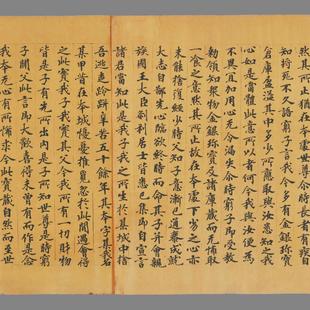 然其所止猶在本處世尊尒時長者有疾自
知將死不久語窮子言我今多有金銀珍寶
倉庫盈溢其中多少所應取與汝悉知之我
心如是當體此意所以者何今我與汝便為
不異宜加用心无令漏失尒時窮子即受教
勅領知衆物金銀珍寶及諸庫藏而无悕取
一飡之意然其所止故在本處下劣之心亦
未能捨復經少時父知子意漸已通泰成就
大志自鄙先心臨欲終時而命其子并會親
族國王大臣剎利居士皆悉已集即自宣言
諸君當知此是我子我之所生於某城中捨
吾逃走跉跰辛苦五十餘年其本字某我名
某甲昔在本城懷憂推覓忽於此間遇會得
之此實我子我實其父今我所有一切財物
皆是子有先所出内是子所知世尊是時窮
子聞父此言即大歡喜得未曾有而作是念
我本无心有所悕求今此寶藏自然而至世